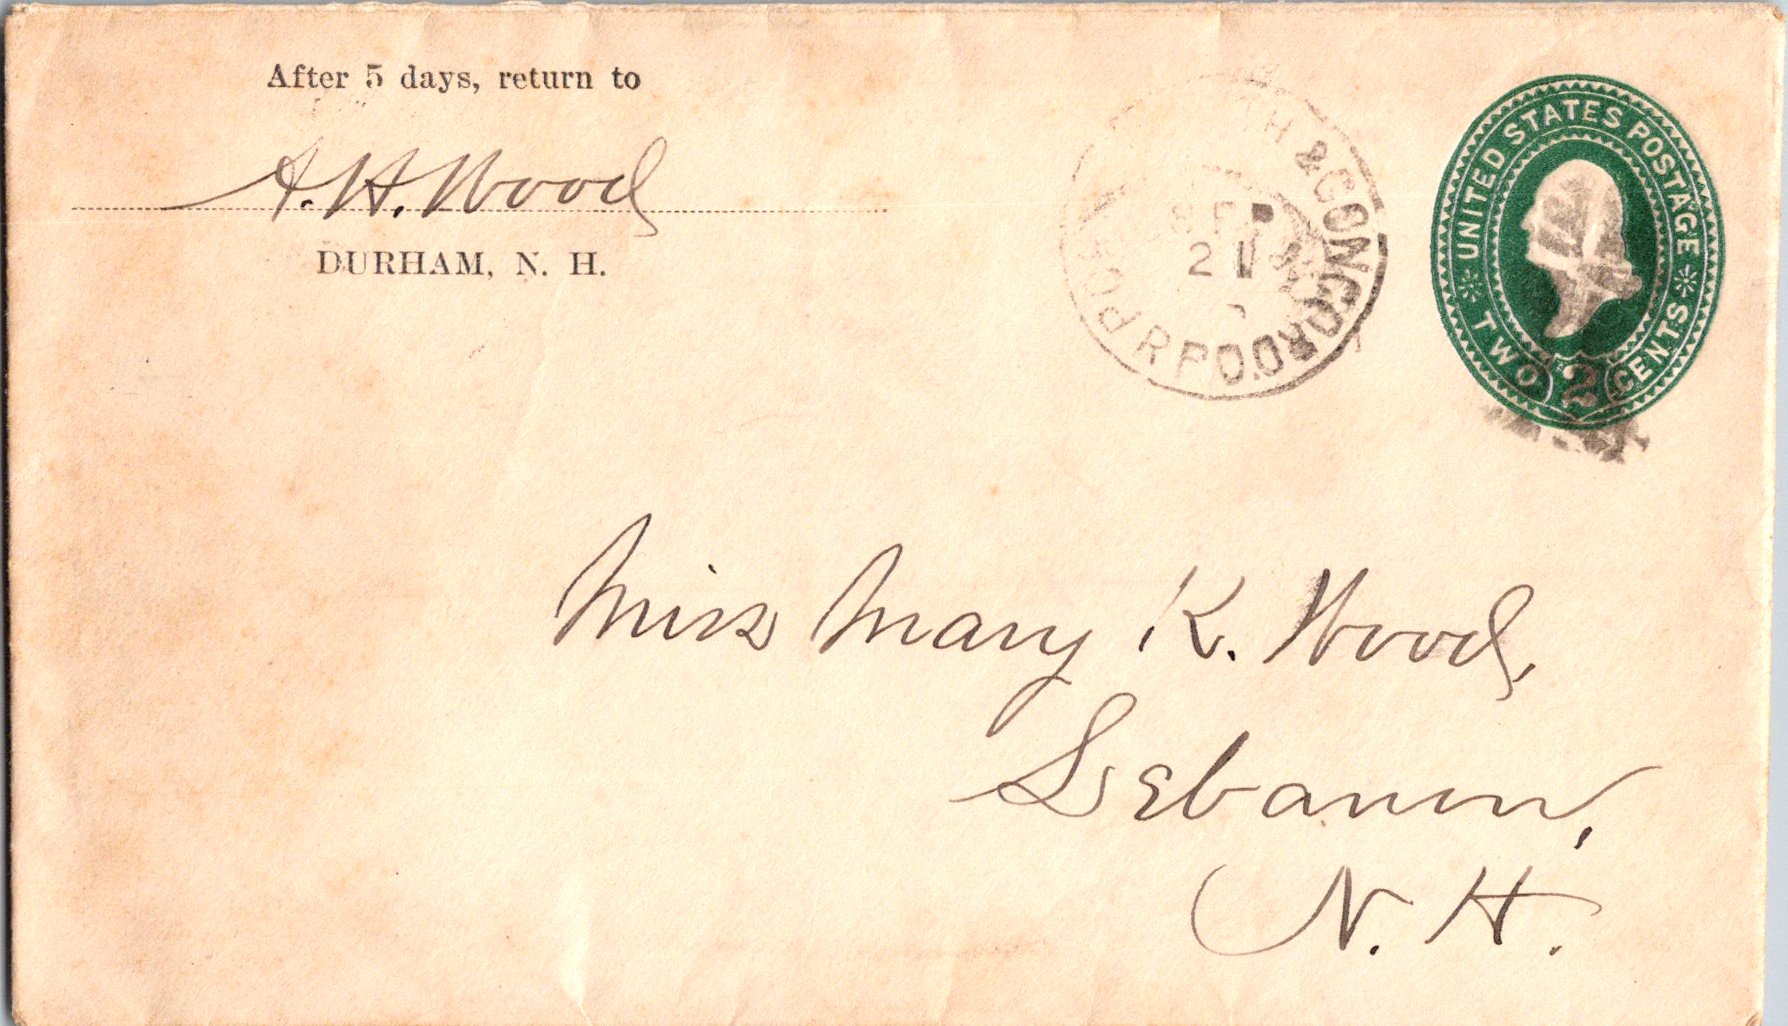 After 5 days, return to
A. H. Wood
DURHAM, N. H.
H & CONCORD
R.P.O.
SEP
21
UNITED STATES POSTAGE
TWO 2 CENTS
Miss Mary K. Wood,
Lebanon,
N. H.